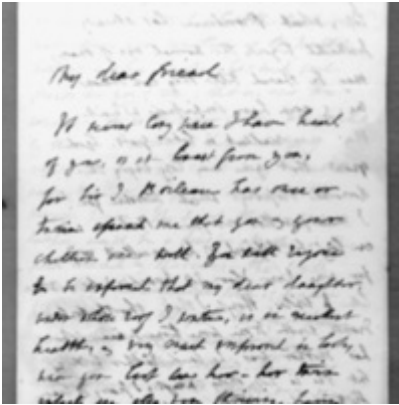 My dear friend
It seems long since I have heard
of you, or at least from you,
for Sir J. Boileau has once or
twice me that you & your
children were well. You will rejoice
to be informed that my dear daughter,
under whose roof I write, is in excellent
health, & very much improved in looks,
since you last saw her - her three